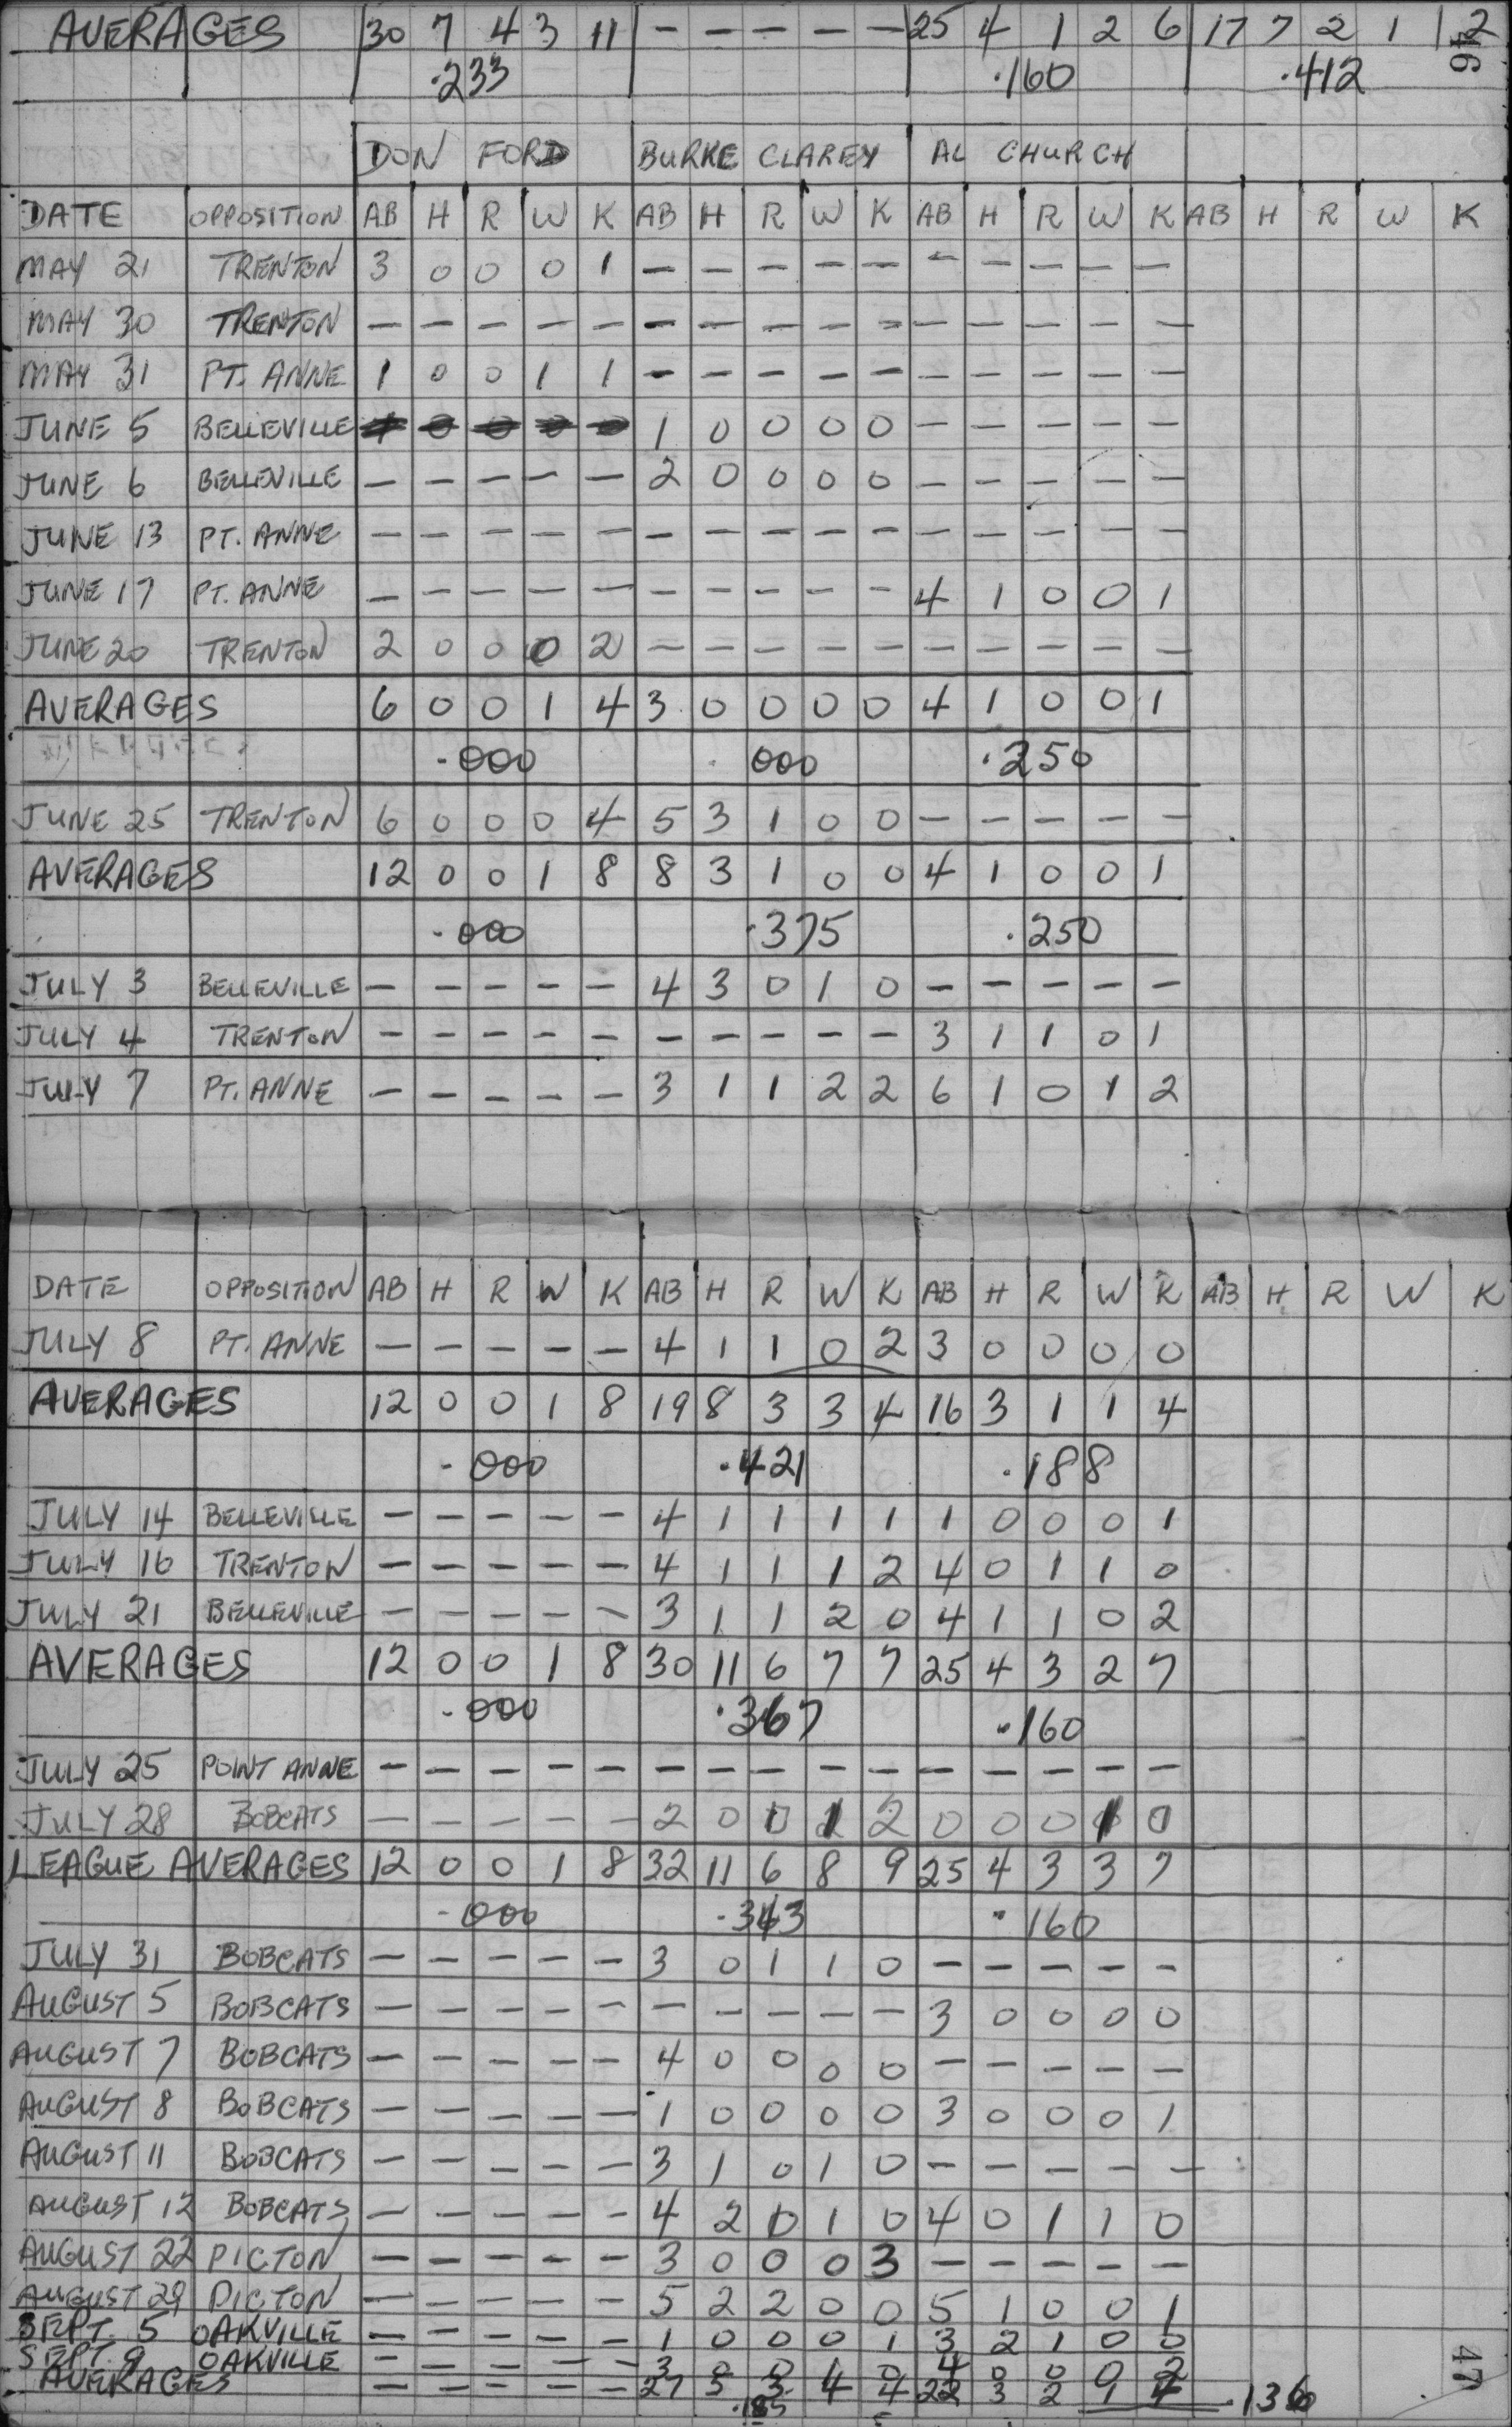 AVERAGES 30 7 4 3 11 — — — — — 25 4 1 2 6 17 7 2 1 2
.233 .160 .412
46
DON FORD BURKE CLAREY AL CHURCH
DATE OPPOSITION AB H R W K AB H R W K AB H R W K AB H R W K
MAY 21 TRENTON 3 0 0 0 1 — — — — — — — — — —
MAY 30 TRENTON — — — — — — — — — — — — — — —
MAY 31 PT. ANNE 1 0 0 1 1 — — — — — — — — — —
JUNE 5 BELLEVILLE 1 0 0 0 0 — — — — —
JUNE 6 BELLEVILLE — — — — — 2 0 0 0 0 — — — — —
JUNE 13 PT. ANNE — — — — — — — — — — — — — — —
JUNE 17 PT. ANNE — — — — — — — — — — 4 1 0 0 1
JUNE 20 TRENTON 2 0 0 0 2 — — — — — — — — — —
AVERAGES 6 0 0 1 4 3 0 0 0 0 4 1 0 0 1
.000 .000 .250
JUNE 25 TRENTON 6 0 0 0 4 5 3 1 0 0 — — — — —
AVERAGES 12 0 0 1 8 8 3 1 0 0 4 1 0 0 1
.000 .375 .250
JULY 3 BELLEVILLE — — — — — 4 3 0 1 0 — — — — —
JULY 4 TRENTON — — — — — — — — — — 3 1 1 0 1
JULY 7 PT. ANNE — — — — — 3 1 1 2 2 6 1 0 1 2
DATE OPPOSITION AB H R W K AB H R W K AB H R W K AB H R W K
JULY 8 PT. ANNE — — — — — 4 1 1 0 2 3 0 0 0 0
AVERAGES 12 0 0 1 8 19 8 3 3 4 16 3 1 1 4
.000 .421 .188
JULY 14 BELLEVILLE — — — — — 4 1 1 1 1 1 0 0 0 1
JULY 16 TRENTON — — — — — 4 1 1 1 2 4 0 1 1 0
JULY 21 BELLEVILLE — — — — — 3 1 1 2 0 4 1 1 0 2
AVERAGES 12 0 0 1 8 30 11 6 7 7 25 4 3 2 7
.000 .367 .160
JULY 25 POINT ANNE — — — — — — — — — — — — — — —
JULY 28 BOBCATS — — — — — 2 0 0 1 2 0 0 0 1 0
LEAGUE AVERAGES 12 0 0 1 8 32 11 6 8 9 25 4 3 3 7
.000 .343 .160
JULY 31 BOBCATS — — — — — 3 0 1 1 0 — — — — —
AUGUST 5 BOBCATS — — — — — — — — — — 3 0 0 0 0
AUGUST 7 BOBCATS — — — — — 4 0 0 0 0 — — — — —
AUGUST 8 BOBCATS — — — — — 1 0 0 0 0 3 0 0 0 1
AUGUST 11 BOBCATS — — — — — 3 1 0 1 0 — — — — —
AUGUST 12 BOBCATS — — — — — 4 2 0 1 0 4 0 1 1 0
AUGUST 22 PICTON — — — — — 3 0 0 0 3 — — — — —
AUGUST 29 PICTON — — — — — 5 2 2 0 0 5 1 0 0 1
SEPT. 5 OAKVILLE — — — — — 1 0 0 0 1 3 2 1 0 0
SEPT. 9 OAKVILLE — — — — — 3 0 0 1 0 4 0 0 0 2
AVERAGES — — — — — 27 5 3 4 4 22 3 2 1 4 .136
.185
47